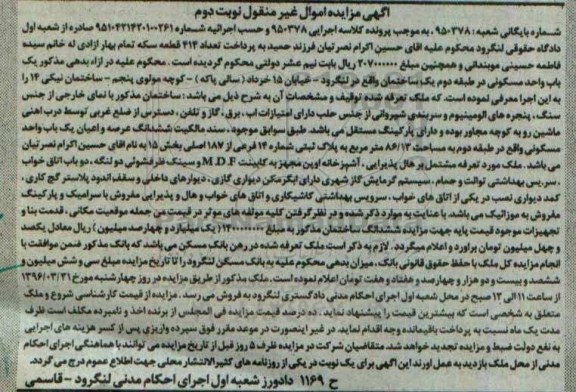 آگهی مزایده اموال غیر منقول نوبت دوم
شماره بایگانی شعبه : ۹۵۰۳۷۸ . به موجب پرونده کلاسه اجرایی ۹۵۰۳۷۸ و حسب اجرائیه شماره ۹۵۱۰۴۲۱۴۲۰۱۰۰۲۶۱ صادره از شعبه اول
دادگاه حقوقی لنگرود محکوم علیه اقای حسین اکرام نصرتیان فرزند حمید به پرداخت تعداد ۴۱۴ قطعه سکه تمام بهار ازادی له خانم سیده
فاطمه حسینی موبندانی و همچنین مبلغ ۲۰۷۰۰۰۰۰۰ ریال بابت نیم عشر دولتی محکوم گردیده است . محکوم علیه در ازاء بدهی مذکور یک
باب واحد مسکونی در طبقه دوم یک ساختمان واقع در لنگرود - خیابان ۱۵ خرداد ( سالی پاکه ) - کوچه مولوی پنجم - ساختمان نیکی ۱۴ را
به این اجرا معرفی نموده است . که ملک تعرفه شده توقیف و مشخصات آن به شرح ذیل می باشد : ساختمان مذکور با نمای خارجی از جنس
سنگ ، پنجره های الومینیوم و سربندی شیروانی از جنس حلب دارای امتیازات اب ، برق ، گاز و تلفن ، دسترس از ضلع غربی توسط درب اهنی
ماشین رو به کوچه مجاور بوده و دارای پارکینگ مستقل می باشد. طبق سوابق موجود ، سند مالکیت ششدانگ عرصه و اعیان یک باب واحد
مسکونی واقع در طبقه دوم به مساحت ۸۶/۱۳ متر مربع به پلاک ثبتی شماره ۱۴ فرعی از ۱۸۷ اصلی بخش ۱۵ به نام اقای حسین اکرام نصرتیان
می باشد. ملک مورد تعرفه مشتمل بر هال پذیرایی ، آشپزخانه اوپن مجهز به کابینت M.D.F و سینک ظرفشوئی دو لنگه ، دو باب اتاق خواب
، سرویس بهداشتی توالت و حمام ، سیستم گرمایش گاز شهری دارای ابگرمکن دیواری گازی ، دیوارهای داخلی و سقف اندود پلاستر گچ کاری ،
کمد دیواری نصب در یکی از اتاق های خواب ، سرویس بهداشتی کاشیکاری و اتاق های خواب و هال و پذیرایی مفروش با سرامیک و پارکینگ
مفروش به موزائیک می باشد. با عنایت به موارد ذکر شده و در نظر گرفتن کلیه مولفه های موثر در قیمت من جمله موقعیت مکانی ، قدمت بنا و
تجهیزات موجود قیمت پایه جهت مزایده ششدانگ ساختمان مذکور به مبلغ ۱۴۰۰۰۰۰۰۰۰ ( یک میلیارد و چهارصد میلیون ) ریال معادل یکصد
و چهل میلیون تومان براورد و اعلام میگردد. لازم به ذکر است ملک تعرفه شده در رهن بانک مسکن می باشد که بانک مذکور ضمن موافقت با
انجام مزایده کل ملک با حفظ حقوق قانونی بانک ، میزان بدهی محکوم علیه به بانک مسکن لنگرود را تا تاریخ مزایده مبلغ سی و شش میلیون و
ششصد و بیست و دو هزار و چهارصد و هفتاد و هفت تومان اعلام نموده است . ملک مذکور از طریق مزایده در روز چهارشنبه مورخ ۱۳۹۶/۰۳/۳۱
از ساعت ۱۱ الی ۱۲ صبح در محل شعبه اول اجرای احکام مدنی دادگستری لنگرود به فروش می رسد . مزایده از قیمت کارشناسی شروع و ملک
متعلق به شخصی است که بیشترین قیمت را پیشنهاد نماید . ده درصد قیمت مزایده فی المجلس از برنده اخذ و نامبرده مکلف است ظرف
مدت یک ماه نسبت به پرداخت باقیمانده وجه اقدام نماید. در غیر اینصورت در موعد مقرر فوق سپرده واریزی پس از کسر هزینه های اجرایی
به نفع دولت ضبط و مزایده تجدید خواهد شد. متقاضیان شرکت در مزایده ظرف ۵ روز قبل از تاریخ مزایده می توانند با هماهنگی اجرای احکام
مدنی از محل ملک بازدید به عمل اورند این آگهی برای یک نوبت در یکی از روزنامه های کثیرالانتشار محلی جهت اطلاع عموم درج می گردد.
ح ۱۱۶۹ دادورز شعبه اول اجرای احکام مدنی لنگرود - قاسمی